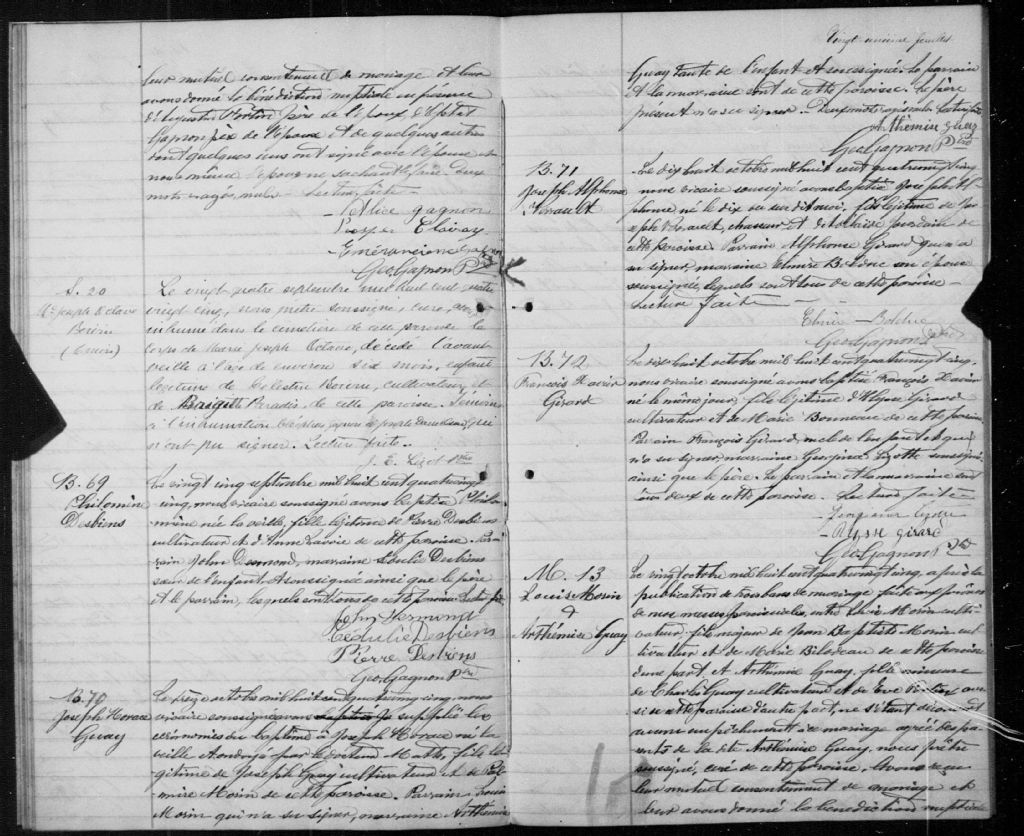 leur mutuel consentement de mariage et leur
avons donné la bénédiction nuptiale en présence
d'Augustin Fortin père de l'époux, d'Eptat
Gagnon père de l'épouse et de quelques autres
dont quelques uns ont signé avec l'épouse et
nous même l'époux ne sachant le faire Deux
mots rayés nuls. Lecture faite
Alice Gagnon
Prosper Cloutier
Émérancienne
Geo. Gagnon Ptre
S. 20
M. Joseph Octave
Boivin
(6 mois)
Le vingt quatre septembre mil huit cent quatre
vingt cinq, nous prêtre soussigné, curé, avons
inhumé dans le cimetière de cette paroisse le
corps de Marie Joseph Octave, décédé l'avant
veille à l'âge de environ six mois, enfant
légitime de Célestin Boivin, cultivateur et
de Brigitte Paradis, de cette paroisse. Témoins
à l'inhumation et Joseph qui
n'ont pu signer. Lecture faite.
J. E. Lizotte Ptre
B. 69
Philomène
Desbiens
Le vingt cinq septembre mil huit cent quatrevingt
cinq, nous vicaire soussigné avons baptisé Philo
mène née la veille, fille légitime de Pierre Desbiens
cultivateur et d'Anne Lavoie de cette paroisse. Par
rain John Desmond, marraine Cédulie Desbiens
sœur de l'enfant, A soussignée ainsi que le père
et le parrain, lesquels sont tous de cette paroisse Lecture faite
John Desmond
Cédulie Desbiens
Pierre Desbiens
Geo. Gagnon Ptre
B. 70
Joseph Horace
Guay
Le seize octobre mil huit cent quatrevingt cinq nous
vicaire soussigné avons baptisé suppléé les
cérémonies du baptême à Joseph Horace né la
veille et ondoyé par le docteur Matte, fils lé
gitime de Joseph Guay cultivateur et de Pal
mire Morin de cette paroisse. Parrain Louis
Morin qui n'a su signer, marraine Arthémise
Vingt unième feuillet
Guay tante de l'enfant et soussignée. Le parrain
et la marraine sont de cette paroisse. Le père
présent n'a su signer. Deux mots rayés nuls. Lecture faite
Arthémise Guay
Geo. Gagnon Ptre
B. 71
Joseph Alphonse
Perrault
Le dix huit octobre mil huit cent quatrevingt cinq
nous vicaire soussigné avons baptisé Joseph Al
phonse né le dix du susdit moi, fils légitime de Jo
seph Perrault, chasseur et
cette paroisse. Parrain Alphonse Girard qui n'a
su signer, marraine Elmire Bolduc son épouse
soussignée, lesquels sont tous de cette paroisse
Lecture faite
Elmire Bolduc
Geo. Gagnon Ptre
B. 72
François Xavier
Girard
Le dix huit octobre mil huit cent quatrevingt cinq.
nous vicaire soussigné avons baptisé François Xavier
né le même jour, fils légitime d'Ulysse Girard
cultivateur et de Marie Bonneau de cette paroisse
Parrain François Girard, oncle de l'enfant et qui
n'a su signer, marraine Georgina Lizotte soussignée
ainsi que le père. Le parrain et la marraine sont
tous deux de cette paroisse. Lecture faite
Georgina Lizotte
Ulysse Girard
Geo. Gagnon Ptre
M. 13
Louis Morin
&
Arthémise Guay
Le vingt octobre mil huit cent quatrevingt cinq, après la
publication de trois bans de mariage faite aux prônes
de nos messes paroissiales, entre Louis Morin culti
vateur, fils majeur de Jean Baptiste Morin cul
tivateur et de Marie Bilodeau de cette paroisse
d'une part, et Arthémise Guay, fille mineure
de Charles Guay cultivateur et de Eve Fortin aus
si de cette paroisse d'autre part, ne s'étant découvert
aucun empêchement à ce mariage agréé des pa
rents de la dite Arthémise Guay, nous prêtre
soussigné, curé de cette paroisse. Avons reçu
leur mutuel consentement de mariage et
leur avons donné la bénédiction nuptiale